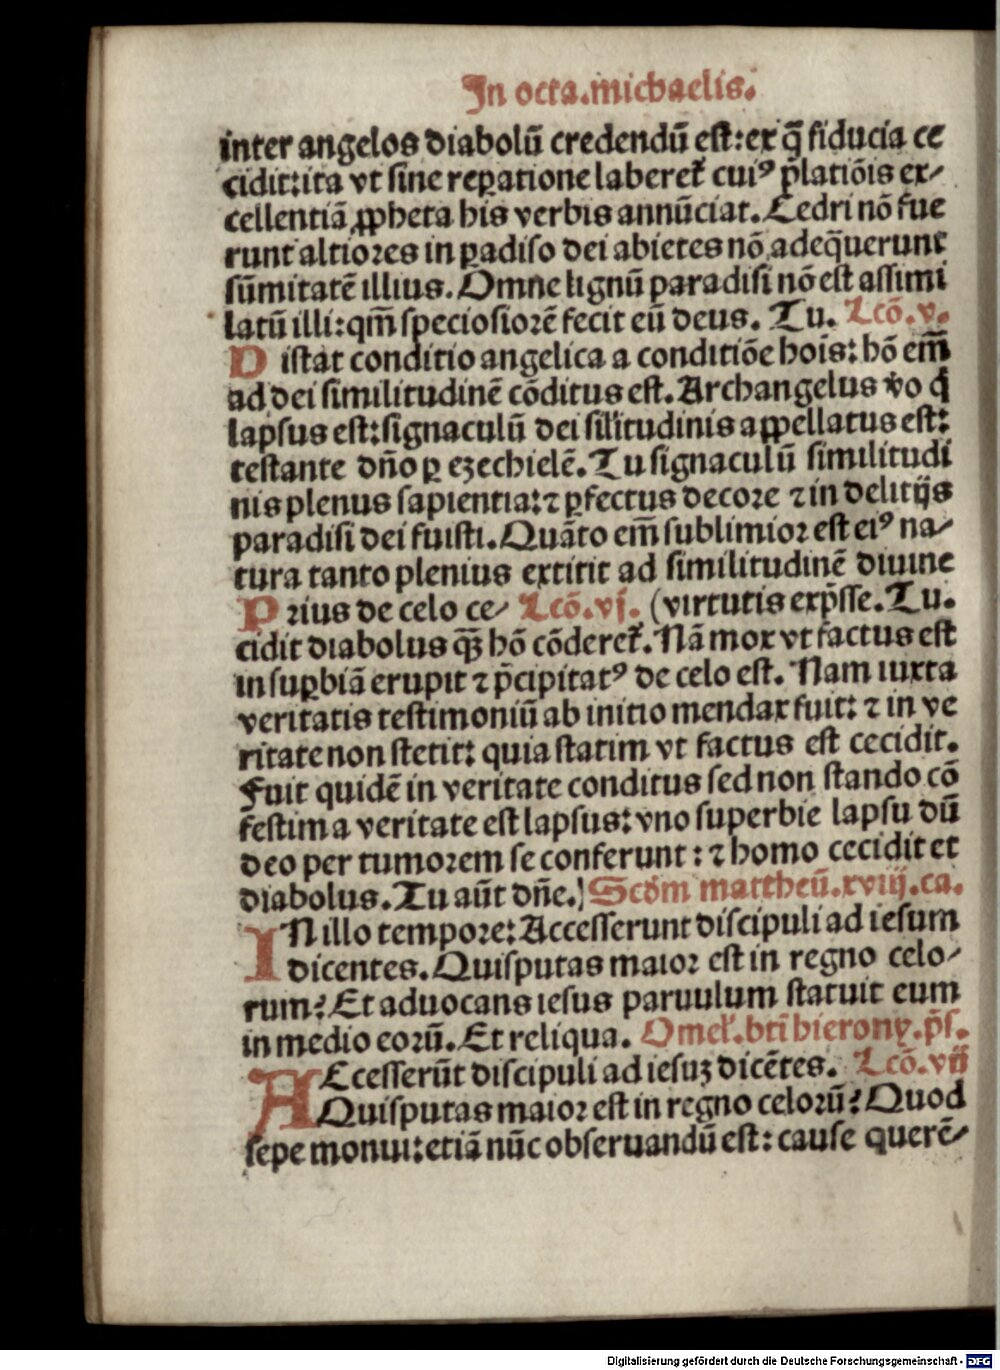 In octa.michaelis.
inter angelos diabolū credendū est:ex q̄ fiducia ce
cidit:ita vt sine reꝑatione laberet᷑ cuiꝰ p̄latiōis ex⸗
cellentiā ꝓpheta his verbis annūciat.Cedri nō fue
runt altiores in ꝑadiso dei abietes nō adeq̄uerunt
sūmitatē illius.Omne lignū paradisi nō est assimi
latū illi:qm̄ speciosiorē fecit eū deus. Tu. Lcō.v.
Distat conditio angelica a conditiōe hoīs:hō em̄
ad dei similitudinē cōditus est.Archangelus v̄o q̇
lapsus est:signaculū dei sil̓itudinis aꝓpellatus est:
testante dn̄o ꝑ ezechielē.Tu signaculū similitudi
nis plenus sapientia:⁊ ꝑfectus decore ⁊ in delitijs
paradisi dei fuisti.Quāto em̄ sublimior est eiꝰ na⸗
tura tanto plenius extitit ad similitudinē diuine
Prius de celo ce⸗ Lcō.vj. (virtutis exp̄sse.Tu.
cidit diabolus qȝ̄ hō cōderet᷑.Nā mox vt factus est
in suꝑbiā erupit ⁊ p̄cipitatꝰ de celo est. Nam iuxta
veritatis testimoniū ab initio mendax fuit: ⁊ in ve
ritate non stetit: quia statim vt factus est cecidit.
Fuit quidē in veritate conditus sed non stando cō
festim a veritate est lapsus:vno superbie lapsu dū
deo per tumorem se conferunt:⁊ homo cecidit et
diabolus.Tu aūt dn̄e.) Scdm̄ mattheū.xviij.ca.
IN illo tempore:Accesserunt discipuli ad iesum
dicentes.Quisputas maior est in regno celo⸗
rum?Et aduocans iesus paruulum statuit eum
in medio eorū.Et reliqua. Omel̓.bti̅ hierony.p̄s.
ACcesserūt discipuli ad iesuꝫ dicētes. Lcō.vii
Quisputas maior est in regno celorū?Quod
sepe monui:etiā nūc obseruandū est:cause querē⸗
Digitalisierung gefördert durch die Deutsche Forschungsgemeinschaft - DFG